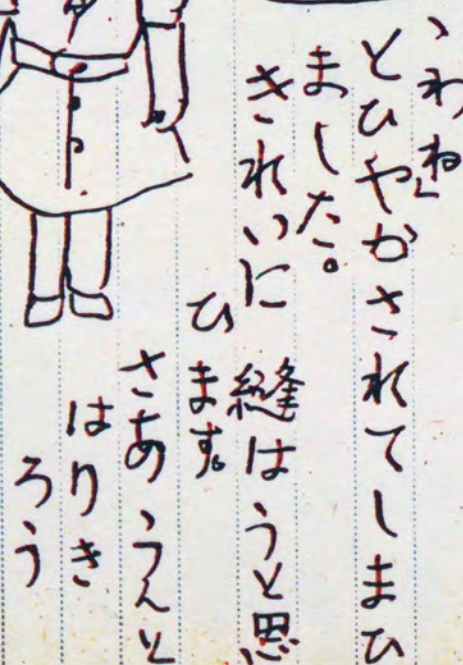 いわね」
とひやかされてしまひ
ました。
きれいに縫はうと思
ひます。
さあうんと
はりき
ろう